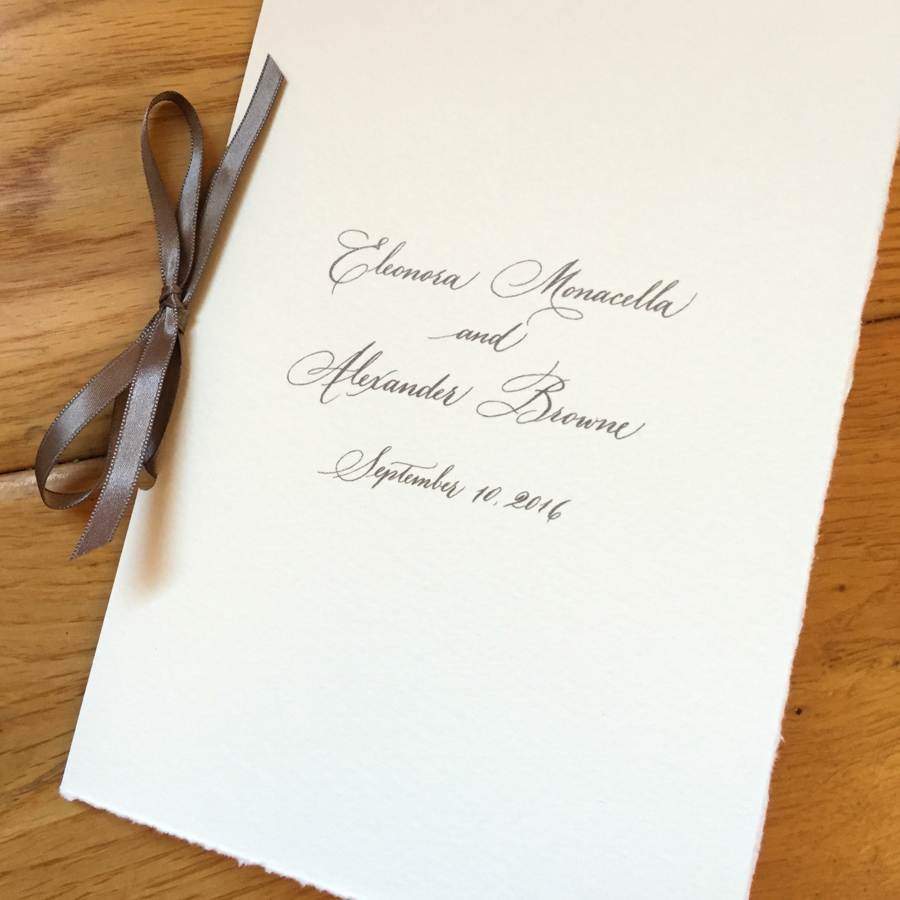 Eleonora Monacella
and
Alexander Browne
September 10, 2016